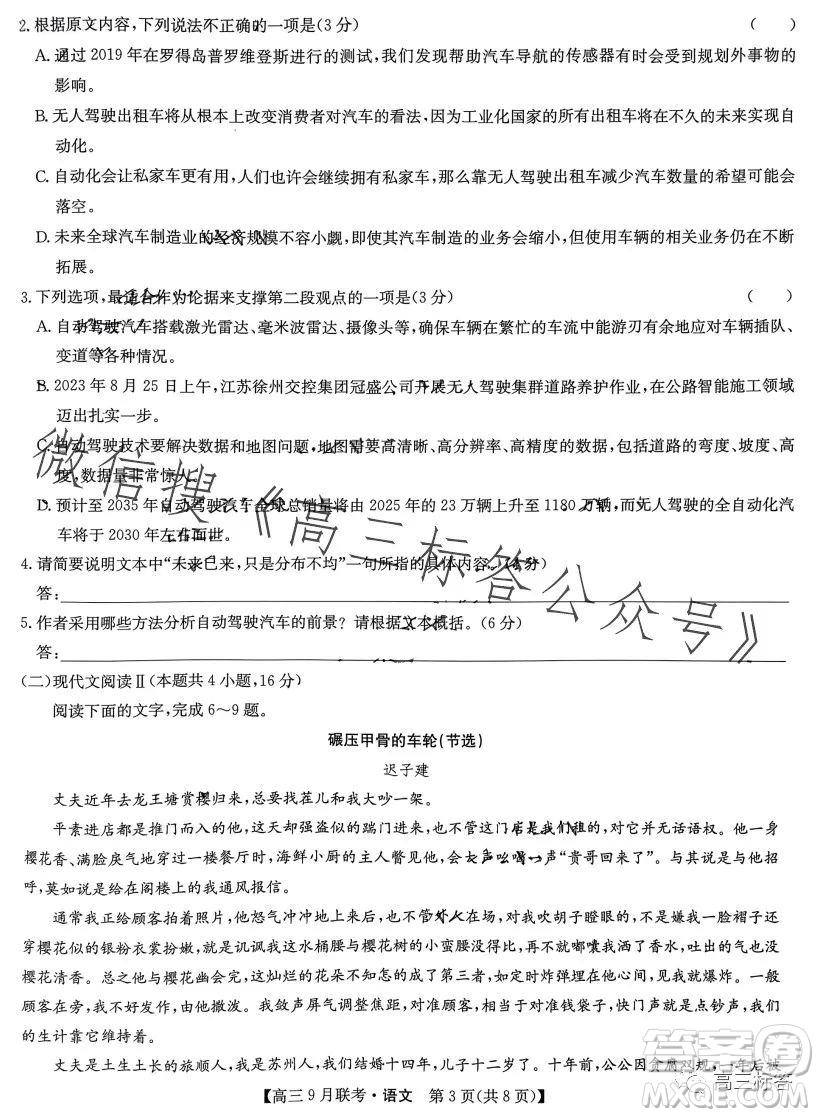 2. 根据原文内容，下列说法不正确的一项是(3 分) (　　)
A. 通过 2019 年在罗得岛普罗维登斯进行的测试，我们希望帮助汽车导航的传感器有规划外事物的
影响。
B. 无人驾驶出租车将从根本上改变消费者对汽车的看法，因为工业化国家的所有车将在不久的未来实现自
动化。
C. 自动化会让私家车更有用，一些人会许会继续拥有私家车，靠无人驾驶出租车减少汽车数量的希望可能会
落空。
D. 未来全球汽车制造业的经济规模不容小觑，即使汽车制造的业务会缩小，但使用车辆的相关业务仍在不断
拓展。
3. 下列选项，最适合作为论据来支撑第二段观点的一项是(3 分) (　　)
A. 自动驾驶汽车搭载激光雷达、毫米波雷达、摄像头等，确保车辆在繁忙的车流中能游刃有余地应对车辆插队、
变道等各种情况。
B. 2023 年 8 月 25 日上午，江苏徐州交控集团冠盛公司开展无人驾驶集群道路养护作业，在公路智能施工领域
迈出扎实一步。
C. 自动驾驶技术要解决数据和地图问题，地图需要高清晰、高分辨率、高精度的数据，包括道路的弯度、坡度、高
度，数据量非常惊人。
D. 预计至 2035 年自动驾驶汽车全球总销量将由 2025 年的 23 万辆上升至 1180 万辆，而无人驾驶的全自动化汽
车将于 2030 年左右面世。
4. 请简要说明文本中“未来已来，只是分布不均”一句所指的具体内容。(4 分)
答：
5. 作者采用哪些方法分析自动驾驶汽车的前景？请根据文本概括。(6 分)
答：
(二)现代文阅读Ⅱ(本题共 4 小题，16 分)
阅读下面的文字，完成 6～9 题。
碾压甲骨的车轮(节选)
迟子建
丈夫近年去龙王塘赏樱归来，总要找茬儿和我大吵一架。
平素进店都是推门而入的他，这天却强盗似的踹门进来，也不管这门店是我们租的，对它并无话语权。他一身
樱花香、满脸戾气地穿过一楼餐厅时，海鲜小厨的主人瞥见他，会大声吆喝一声“贵哥回来了”。我与其认为他招
呼，莫如说是在阁楼上的我通风报信。
通常我正给顾客拍着照片，他怒气冲冲地上来后，也不管外人在场，对我吹胡子瞪眼的，不是嫌我买的裙子还
穿樱花似的银粉衣裳扮嫩，就是讥讽我这水桶腰与樱花树的小蛮腰无法比，他甚至骂我不知嘟囔了香水，吐出的气也
樱花清香。总之他与樱花相遇，这灿烂的花朵不知怎么成了第三者，如定时炸弹埋在他心间，见我就爆炸。一般
情况下，当着顾客的面，我由他撒泼。我敛声屏气调整焦距，对准顾客，也等于对准钱袋子，多按几下快门，多点钞票，我们
的生计靠它维持呢。
丈夫是土生土长的旅顺人，我是苏州人，我们结婚十四年，儿子十二岁了。十年前，公公因贪腐双规，一年后被
【高三 9 月联考·语文　第 3 页(共 8 页)】
微信搜《高三标答公众号》
高三标答